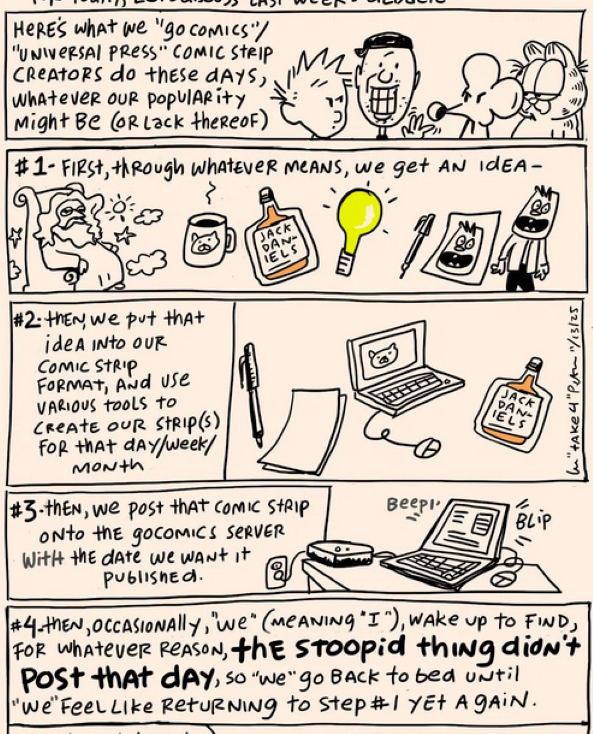 HERE'S WHAT WE "GOCOMICS"/
"UNIVERSAL PRESS" COMIC STRIP
CREATORS DO THESE DAYS,
WHATEVER OUR POPULARITY
MIGHT BE (OR LACK THEREOF)
#1- FIRST, THROUGH WHATEVER MEANS, WE GET AN IDEA-
JACK
DAN-
IELS
#2- THEN, WE PUT THAT
IDEA INTO OUR
COMIC STRIP
FORMAT, AND USE
VARIOUS TOOLS TO
CREATE OUR STRIP(S)
FOR THAT DAY/WEEK/
MONTH
JACK
DAN-
IELS
11/13/25
#3- THEN, WE POST THAT COMIC STRIP
ONTO THE GOCOMICS SERVER
WITH THE DATE WE WANT IT
PUBLISHED.
BEEP!
BLIP
#4- THEN, OCCASIONALLY, "WE" (MEANING "I"), WAKE UP TO FIND,
FOR WHATEVER REASON, THE STOOPID THING DIDN'T
POST THAT DAY, SO "WE" GO BACK TO BED UNTIL
"WE" FEEL LIKE RETURNING TO STEP #1 YET AGAIN.